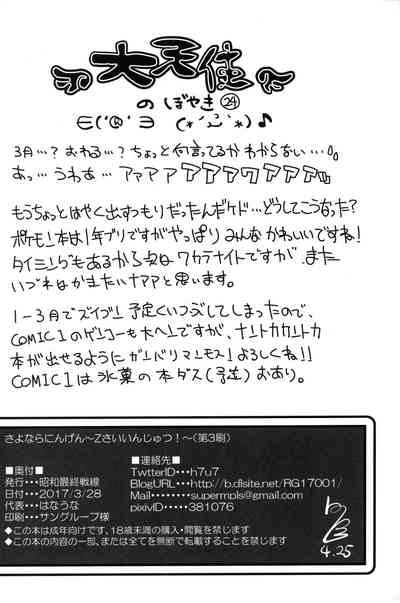 大天使
のぼやき㉔
3月…?おわる…?ちょっと何言ってるかわからない…。。
あっ…うわぁ…アァアァアアアアァアアァ。。
もうちょっとはやく出すつもりだったんだケド…どうしてこうなった?
ポケモン本は1年ブリですがやっぱりみんなかわいいですね!
タイミングもあるから次はワカテナイトですが、また
いづれはかきたいナァァと思います。
1-3月でズイブン予定くいつぶしてしまったので、
COMIC1のゲンコーも大ヘンですが、ナントカカントカ
本が出せるようにガンバリマンモス!よろしくね!!
COMIC1は氷菓の本ダス(予定)おあり。
さよならにんげん~Zさいいんじゅつ!~(第3刷)
■奥付
発行…昭和最終戦線
日付…2017/3/28
代表…はなうな
印刷…サングループ様
■連絡先
TwtterID…h7u7
BlogURL…http://b.dlsite.net/RG17001/
Mail………supermpls@gmail.com
pixivID……381076
◆この本は成年向けです、18歳未満の購入・閲覧を禁じます
◆この本の内容の一部、または全てを無断で転載することを禁じます
4.25